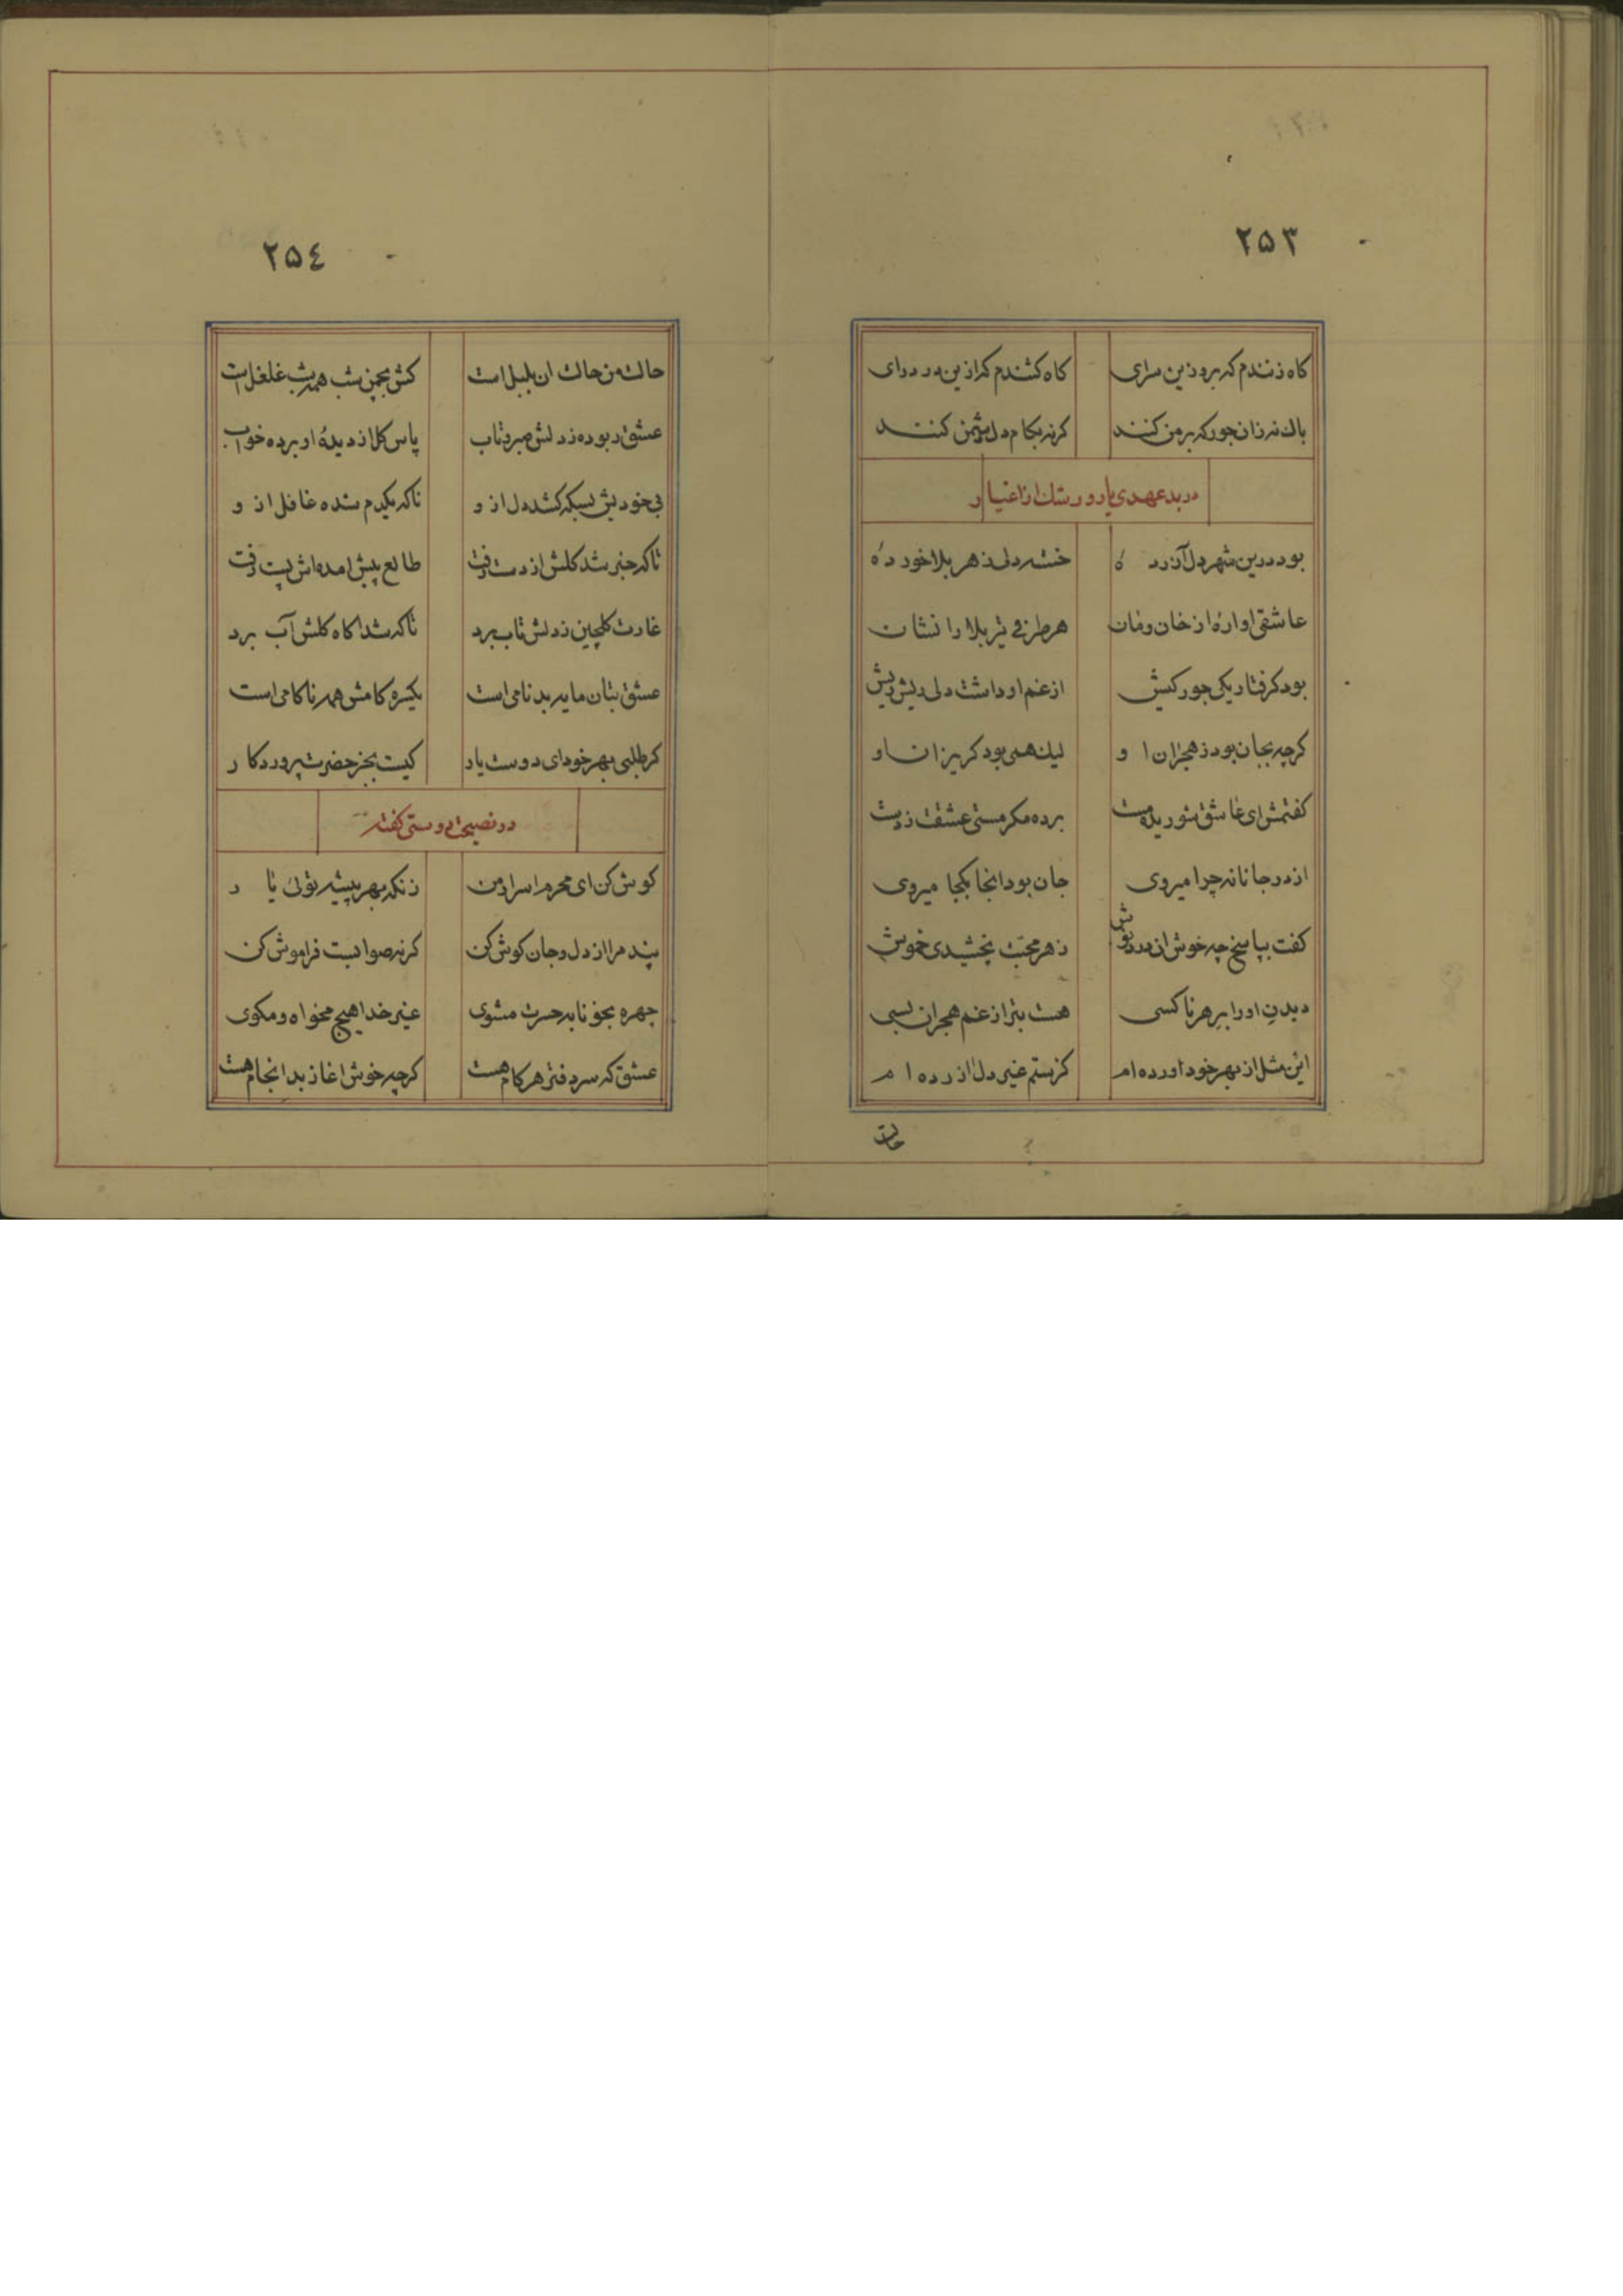 ۲۵۳
کاه زنندم که برو زین سرای کاه کشندم که ازین در درای
باک نه زان جور که بر من کنند کرنه بکام دل دشمن کنند
در بدعهدی یار و رشک از اغیار
بود درین شهر دل آزرده خسته دلی زهر بلا خورده
عاشقی اواره از خان ومان هر طرفی تیر بلا را نشان
بود کرفتار یکی جور کیش از غم او داشت دلی ریش ریش
کرچه بجان بود ز هجران او لیک همی بود کریزان او
کفتمش ای عاشق شوریده مست برده مکر مستی عشقت ز دست
از در جانانه چرا میروی جان بود انجا بکجا میروی
کفت بپاسخ چه خوش ان درد نوش زهر محبت بچشیدی خموش
دیدن او را بر هر ناکسی هست بتر از غم هجران بسی
این مثل از بهر خود اورده ام کز ستم غیر دل ازرده ام
حالت
۲۵٤
حالت من حالت ان بلبل است کش بچمن شب همه شب غلغل است
عشق ربوده ز دلش صبر و تاب پاس کل از دیدهٔ او برده خواب
بی خودیش بسکه کشد دل ازو ناکه یکدم شده غافل ازو
تا که خبر شد کلش از دست رفت طالع پیش امده اش پست رفت
غارت کلچین ز دلش تاب برد تا که شد اکاه کلش آب برد
عشق بتان مایه بدنامی است یکسره کامش همه ناکامی است
کر طلبی بهر خود ای دوست یار کیست بجز حضرت پروردکار
در نصیحت دوستی کفته
کوش کن ای محرم اسرار من زنکه بهر پیشه توئی یار
پند مرا از دل و جان کوش کن کر نه صوابست فراموش کن
چهره بخونابه حسرت مشوی غیر خدا هیچ مخواه و مکوی
عشق که سر دفتر هر کام هست کرچه خوش اغاز بد انجام هست